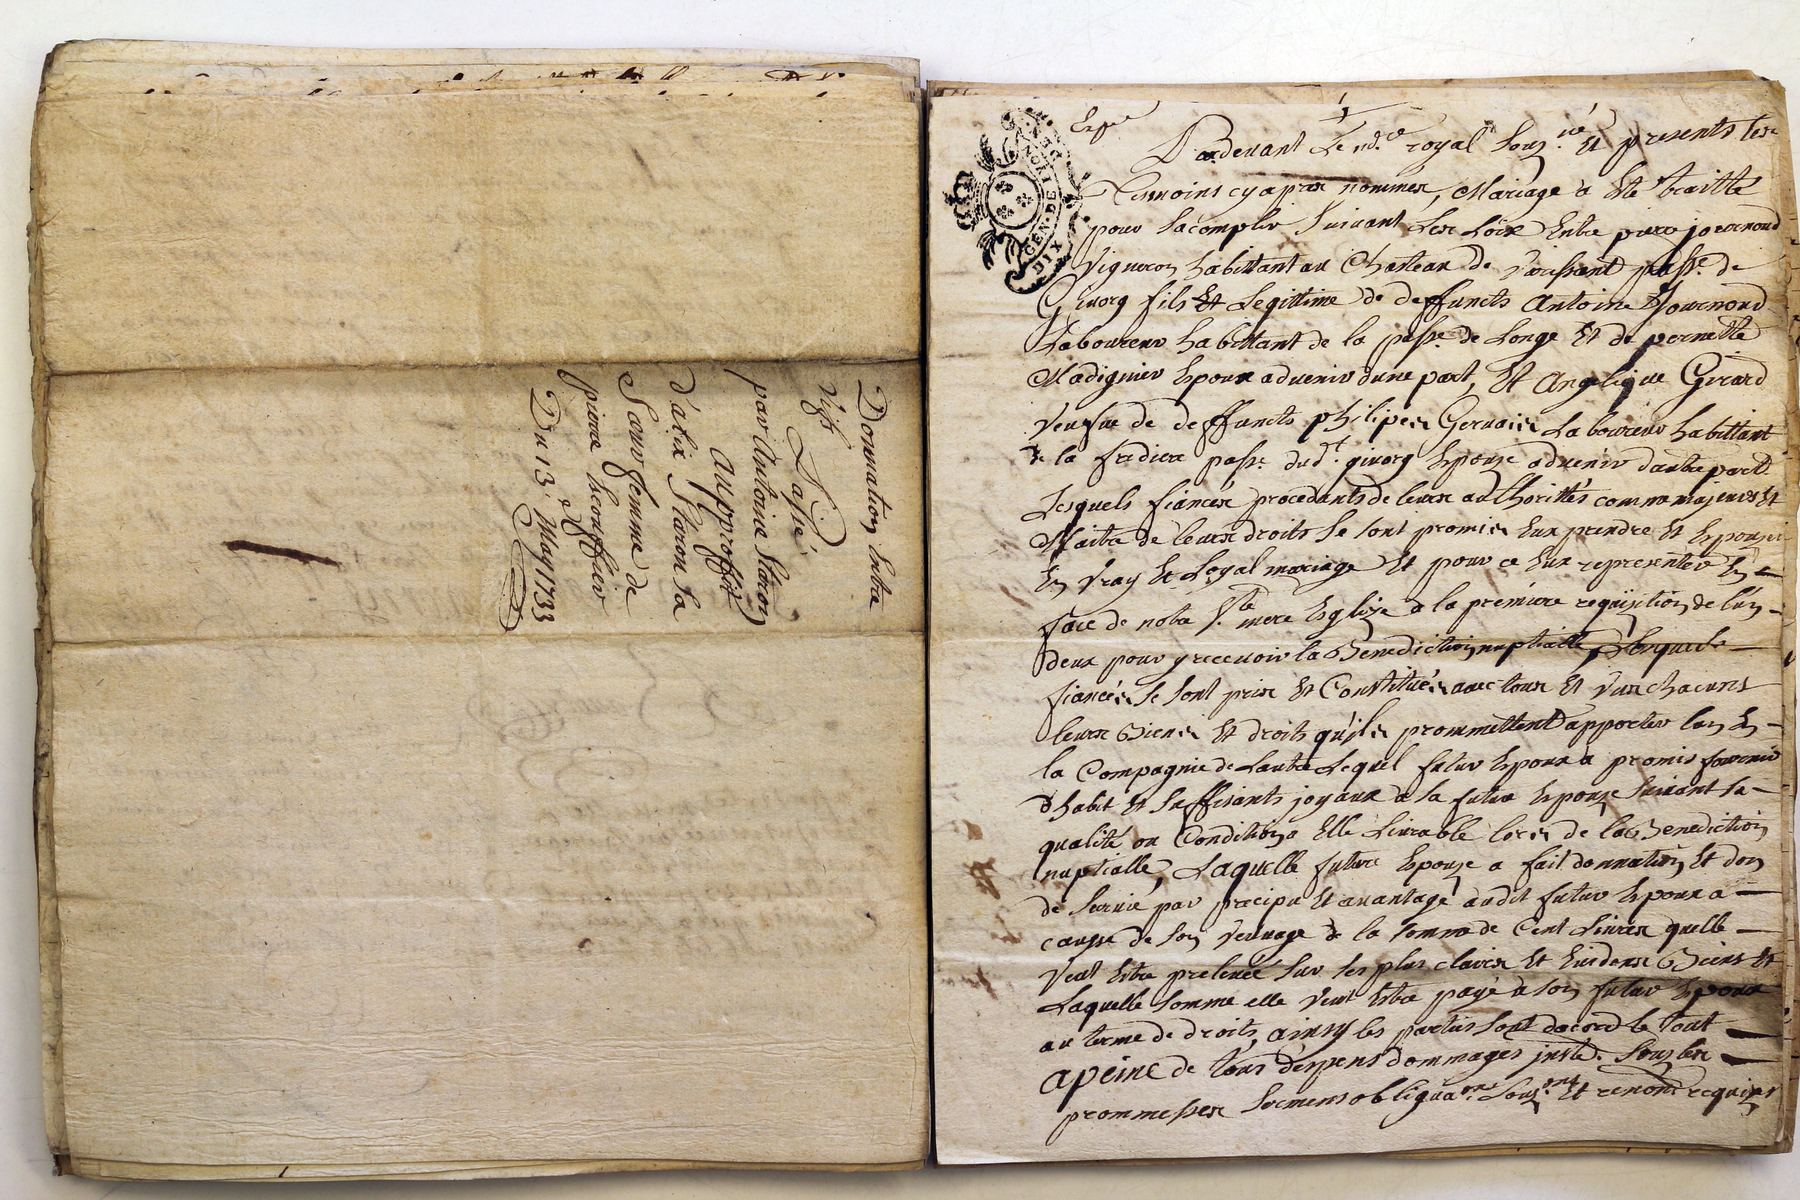 Donnation Entre
vifs
Passé
par Antoine Staron
au proffit
d'alix Staron sa
Sœur femme de
pierre heouffier
Du 13e May 1733
GEN. DE
DIX
Expee
Pardevant Le nore royal Sousné Et presents les
temoins cy apres nommes, Mariage a Ete traitté
pour sacomplir Suivant Les Loix Entre pierre journoud
Vigneron habittant au Chasteau de paisse de
Givorg fils Et Legittime de deffuncts Antoine Journoud
Laboureur habittant de la paisse de Longe Et de pernette
Madignier Epoux advenir dune part, Et Angelique Girard
veufve de deffuncts philipes Gervais Laboureur habittant
de la frediere paisse dudt givorg Epouze advenir dautre part
Lesquels fiancés procedants de leurs authorittés comme majeurs Et
Maitre de leurs droits Se sont promis Eux prendre Et Epouzer
En vray Et Loyal mariage Et pour ce Eux representer En
face de notre Ste mere Eglize a la premiere requizition de lun
deux pour y recevoir la Benediction nuptialle,
fiancés Se sont pris Et Constitués avec tous Et uns chacuns
leurs Biens Et droits quils prommettent apporter lun En
la Compagnie de Lautre Lequel futur Epoux a promis fournir
dhabit Et Suffisants joyaux a la future Epouze Suivant sa
qualité ou Condition a Elle Livrable lors de la Benediction
nuptialle, Laquelle future Epouze a fait donnation Et don
de Survie par precipu Et avantage audit futur Epoux a
cauze de son veuvage de la somme de Cent Livres quelle
veut Etre prelevée Sur ses plus claires Et Evidens Biens Et
Laquelle Somme elle veut Etre payé a son futur Epoux
au terme de droits, ainsy les parties sont dacord le tout
apeine de tous depens dommages Sous les
prommesses Sermens obliguaons Sousons Et renonc requizes